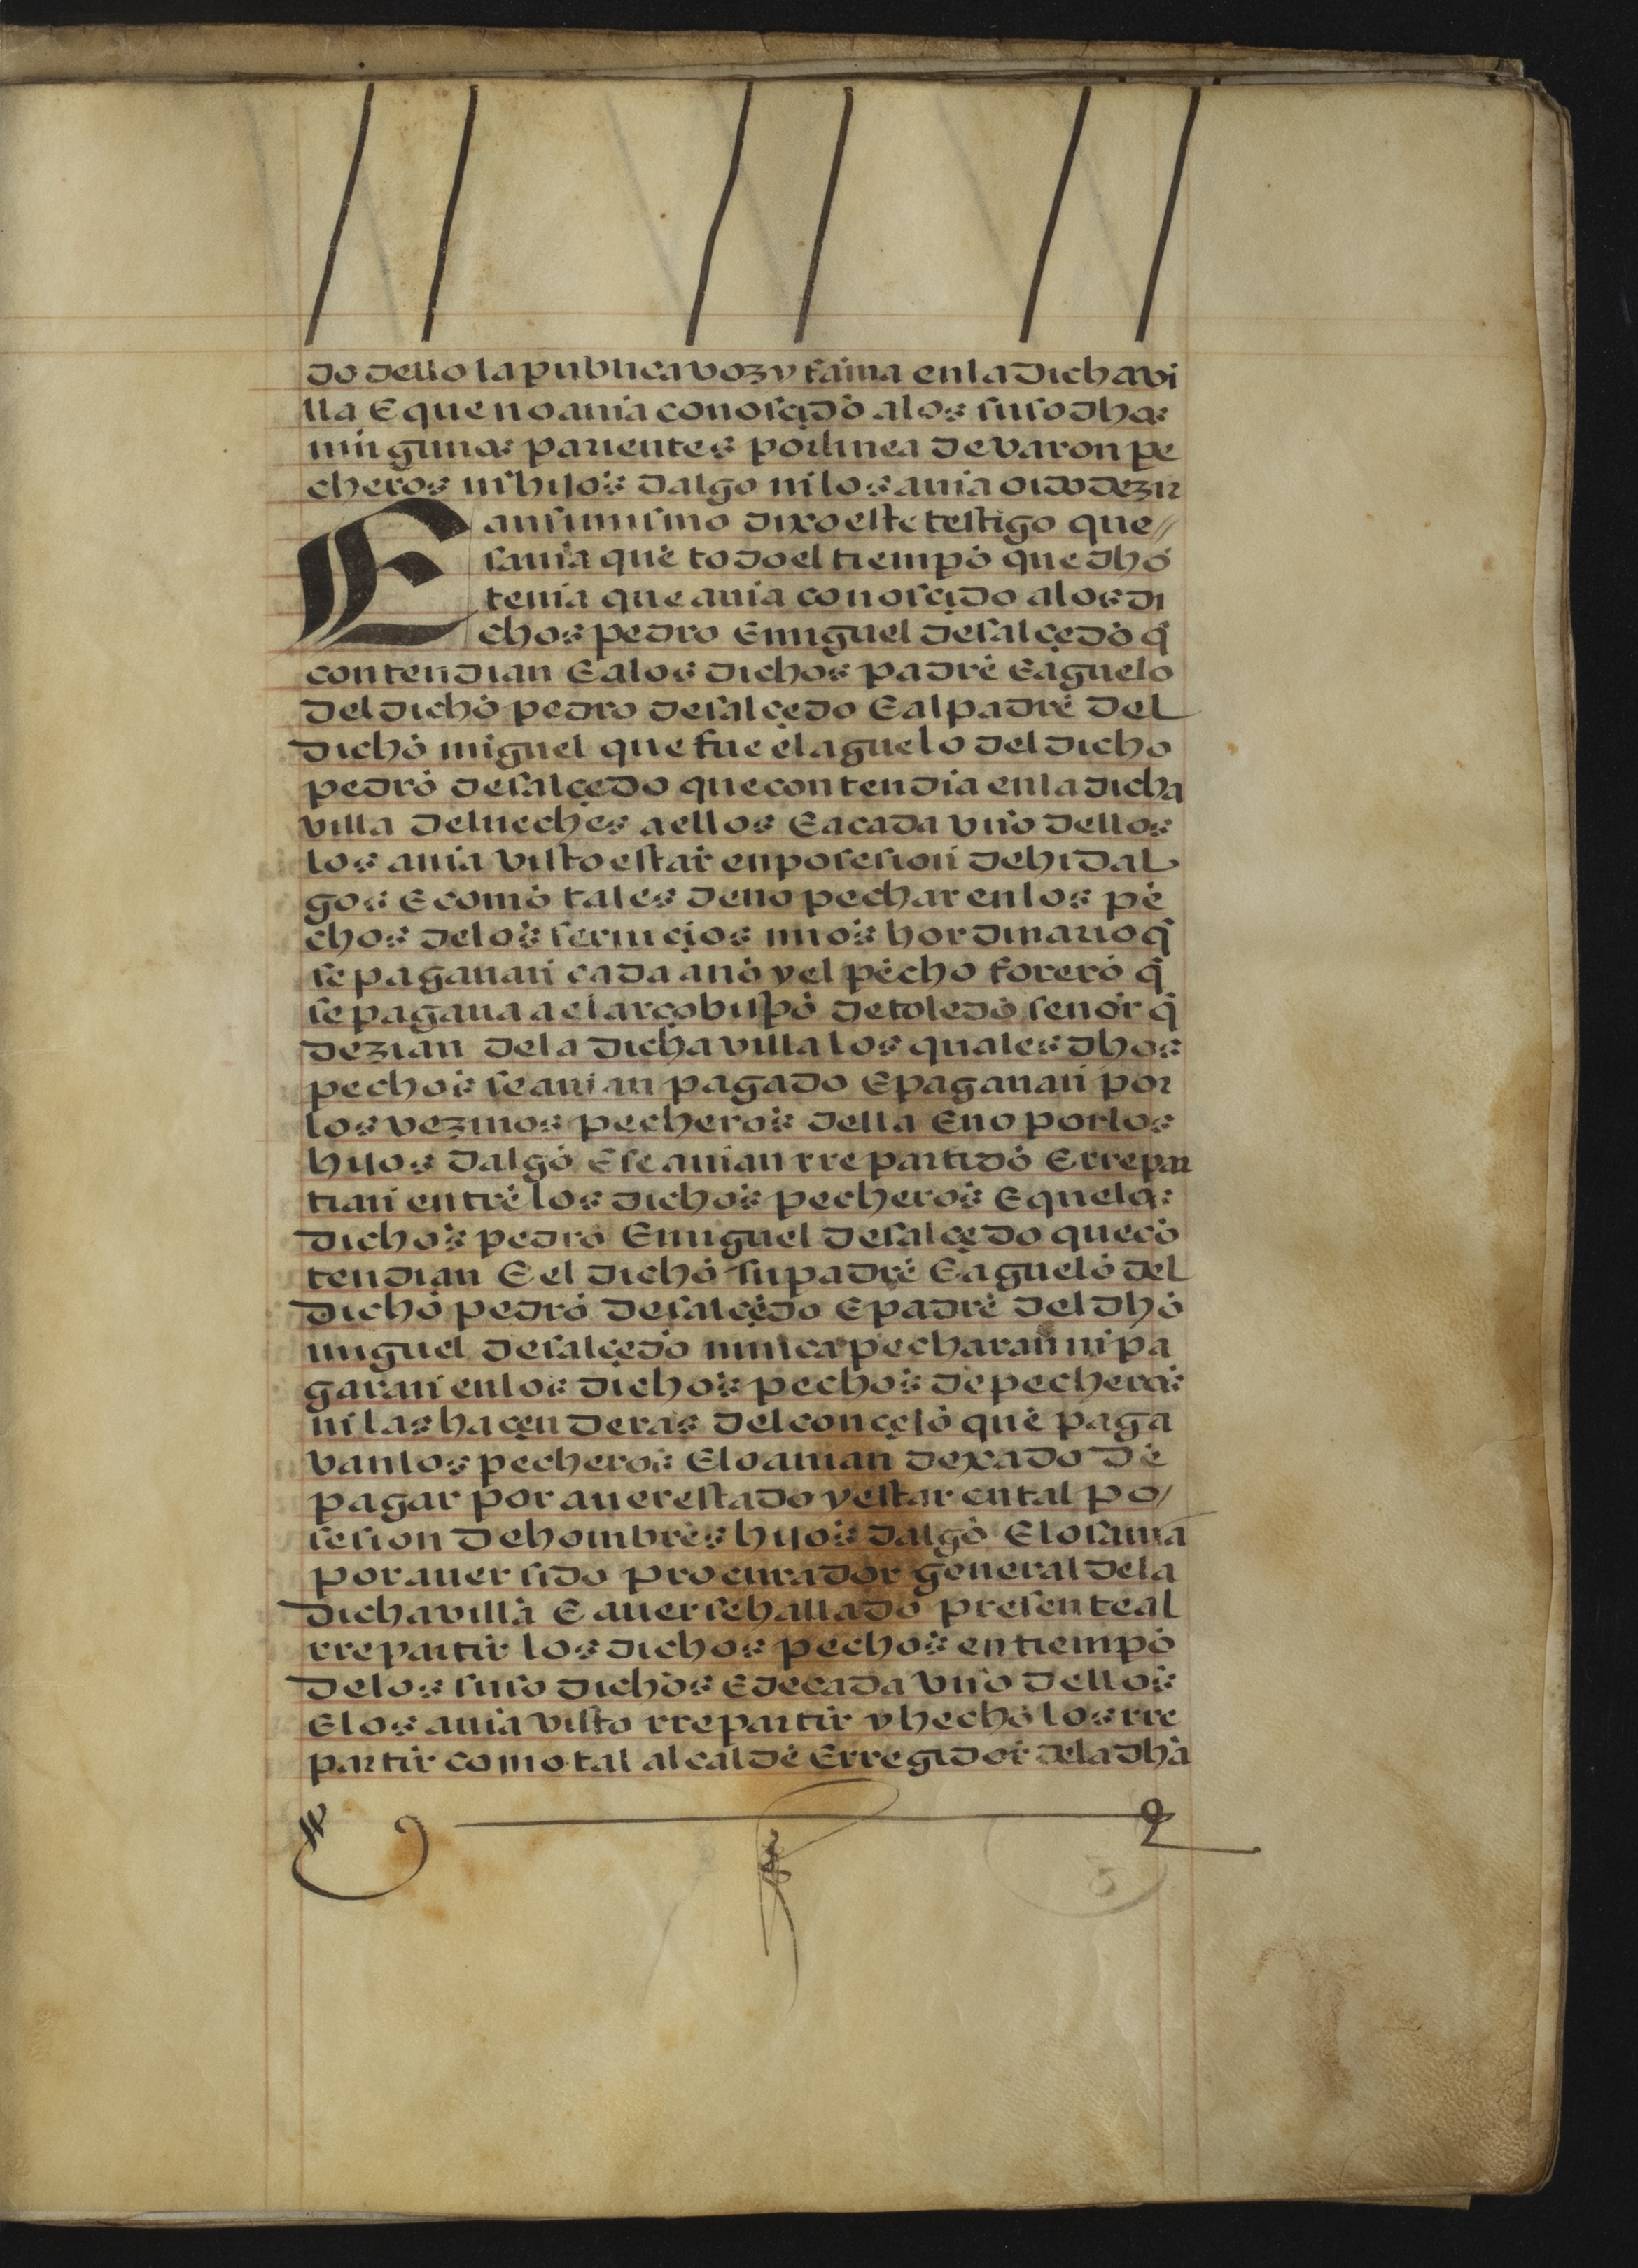 do dello la publica voz y fama en la dicha vi
lla E que no auia conoscido a los susodhos
ningunos parientes por linea de varon pe
cheros ni hijos dalgo ni los auia oido dezir
E ansimismo dixo este testigo que //
sauia que todo el tiempo que dho
tenia que auia conoscido a los di
chos pedro E miguel de salçedo q̃
contendian E a los dichos padre E aguelo
del dicho pedro de salçedo E al padre del
dicho miguel que fue el aguelo del dicho
pedro de salçedo que contendia en la dicha
villa de lueches a ellos E a cada vno dellos
los auia visto estar en posesion de hidal
gos E como tales de no pechar en los pe
chos de los seruiçios mios hordinario q̃
se pagauan cada año y el pecho forero q̃
se pagaua a el arçobispo de toledo señor q̃
dezian de la dicha villa los quales dhos
pechos se auian pagado E pagauan por
los vezinos pecheros della E no por los
hijos dalgo E se auian rrepartido E rrepar
tian entre los dichos pecheros E que los
dichos pedro E miguel de salçedo que cõ
tendian E el dicho su padre E aguelo del
dicho pedro de salçedo E padre del dho
miguel de salçedo nunca pecharan ni pa
garan en los dichos pechos de pecheros
ni las haçenderas del conçejo que paga
van los pecheros E lo auian dexado de
pagar por auer estado y estar en tal po/
sesion de hombres hijos dalgo E lo sauia
por auer sido procurador general de la
dicha villa E auerse hallado presente al
rrepartir los dichos pechos en tiempo
de los suso dichos E de cada vno dellos
E los auia visto rrepartir y hecho los rre
partir como tal alcalde E rregidor de la dha